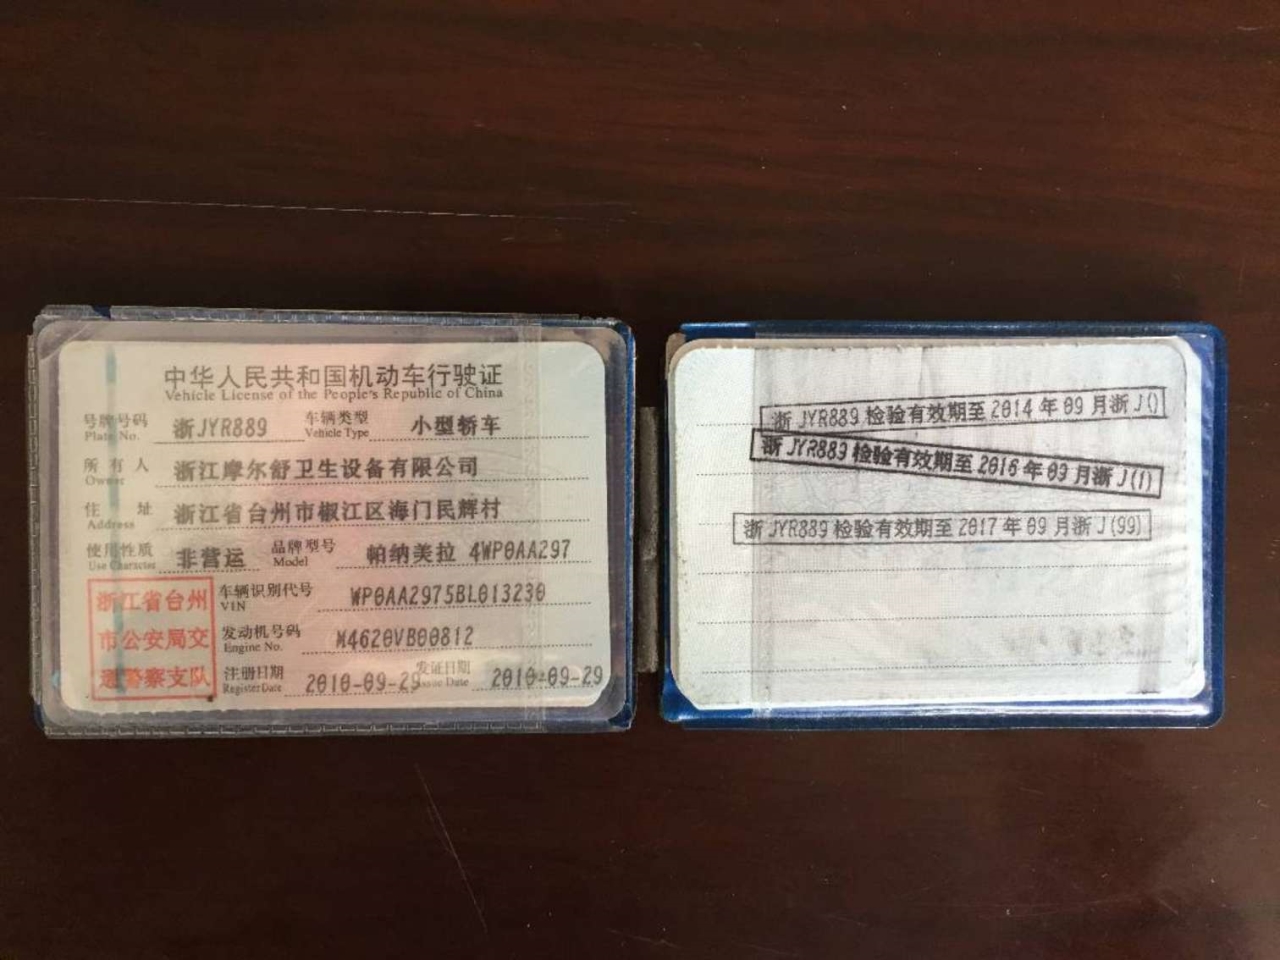 中华人民共和国机动车行驶证
Vehicle License of the People's Republic of China
号牌号码 浙JYR889 车辆类型 小型轿车
Plate No. Vehicle Type
所有人 浙江摩尔舒卫生设备有限公司
Owner
住址 浙江省台州市椒江区海门民辉村
Address
使用性质 非营运 品牌型号 帕纳美拉 4WP0AA297
Use Character Model
浙江省台州
市公安局交
通警察支队
车辆识别代号 WP0AA2975BL013230
VIN
发动机号码 M4620VB00812
Engine No.
注册日期 2010-09-29 发证日期 2010-09-29
Register Date Issue Date
浙JYR889检验有效期至2014年09月浙J()
浙JYR889检验有效期至2016年09月浙J(1)
浙JYR889检验有效期至2017年09月浙J(99)